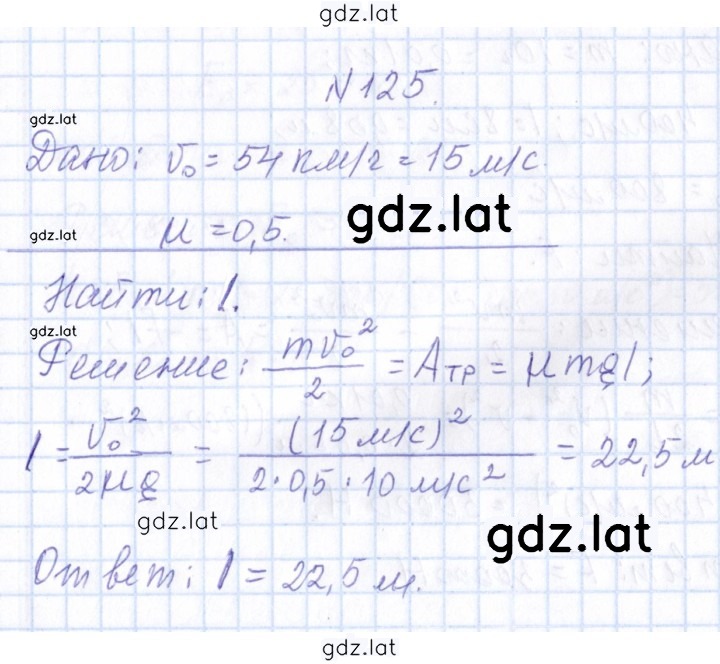 gdz.lat
N 125.
gdz.lat
Дано: v₀ = 54 км/г = 15 м/с.
gdz.lat
gdz.lat μ = 0,5.
Найти: l.
gdz.lat
Решение: mv₀²/2 = Aтр = μmgl;
l = v₀²/2μg = (15 м/с)²/2·0,5·10 м/с² = 22,5 м
gdz.lat
gdz.lat
Ответ: l = 22,5 м.
gdz.lat